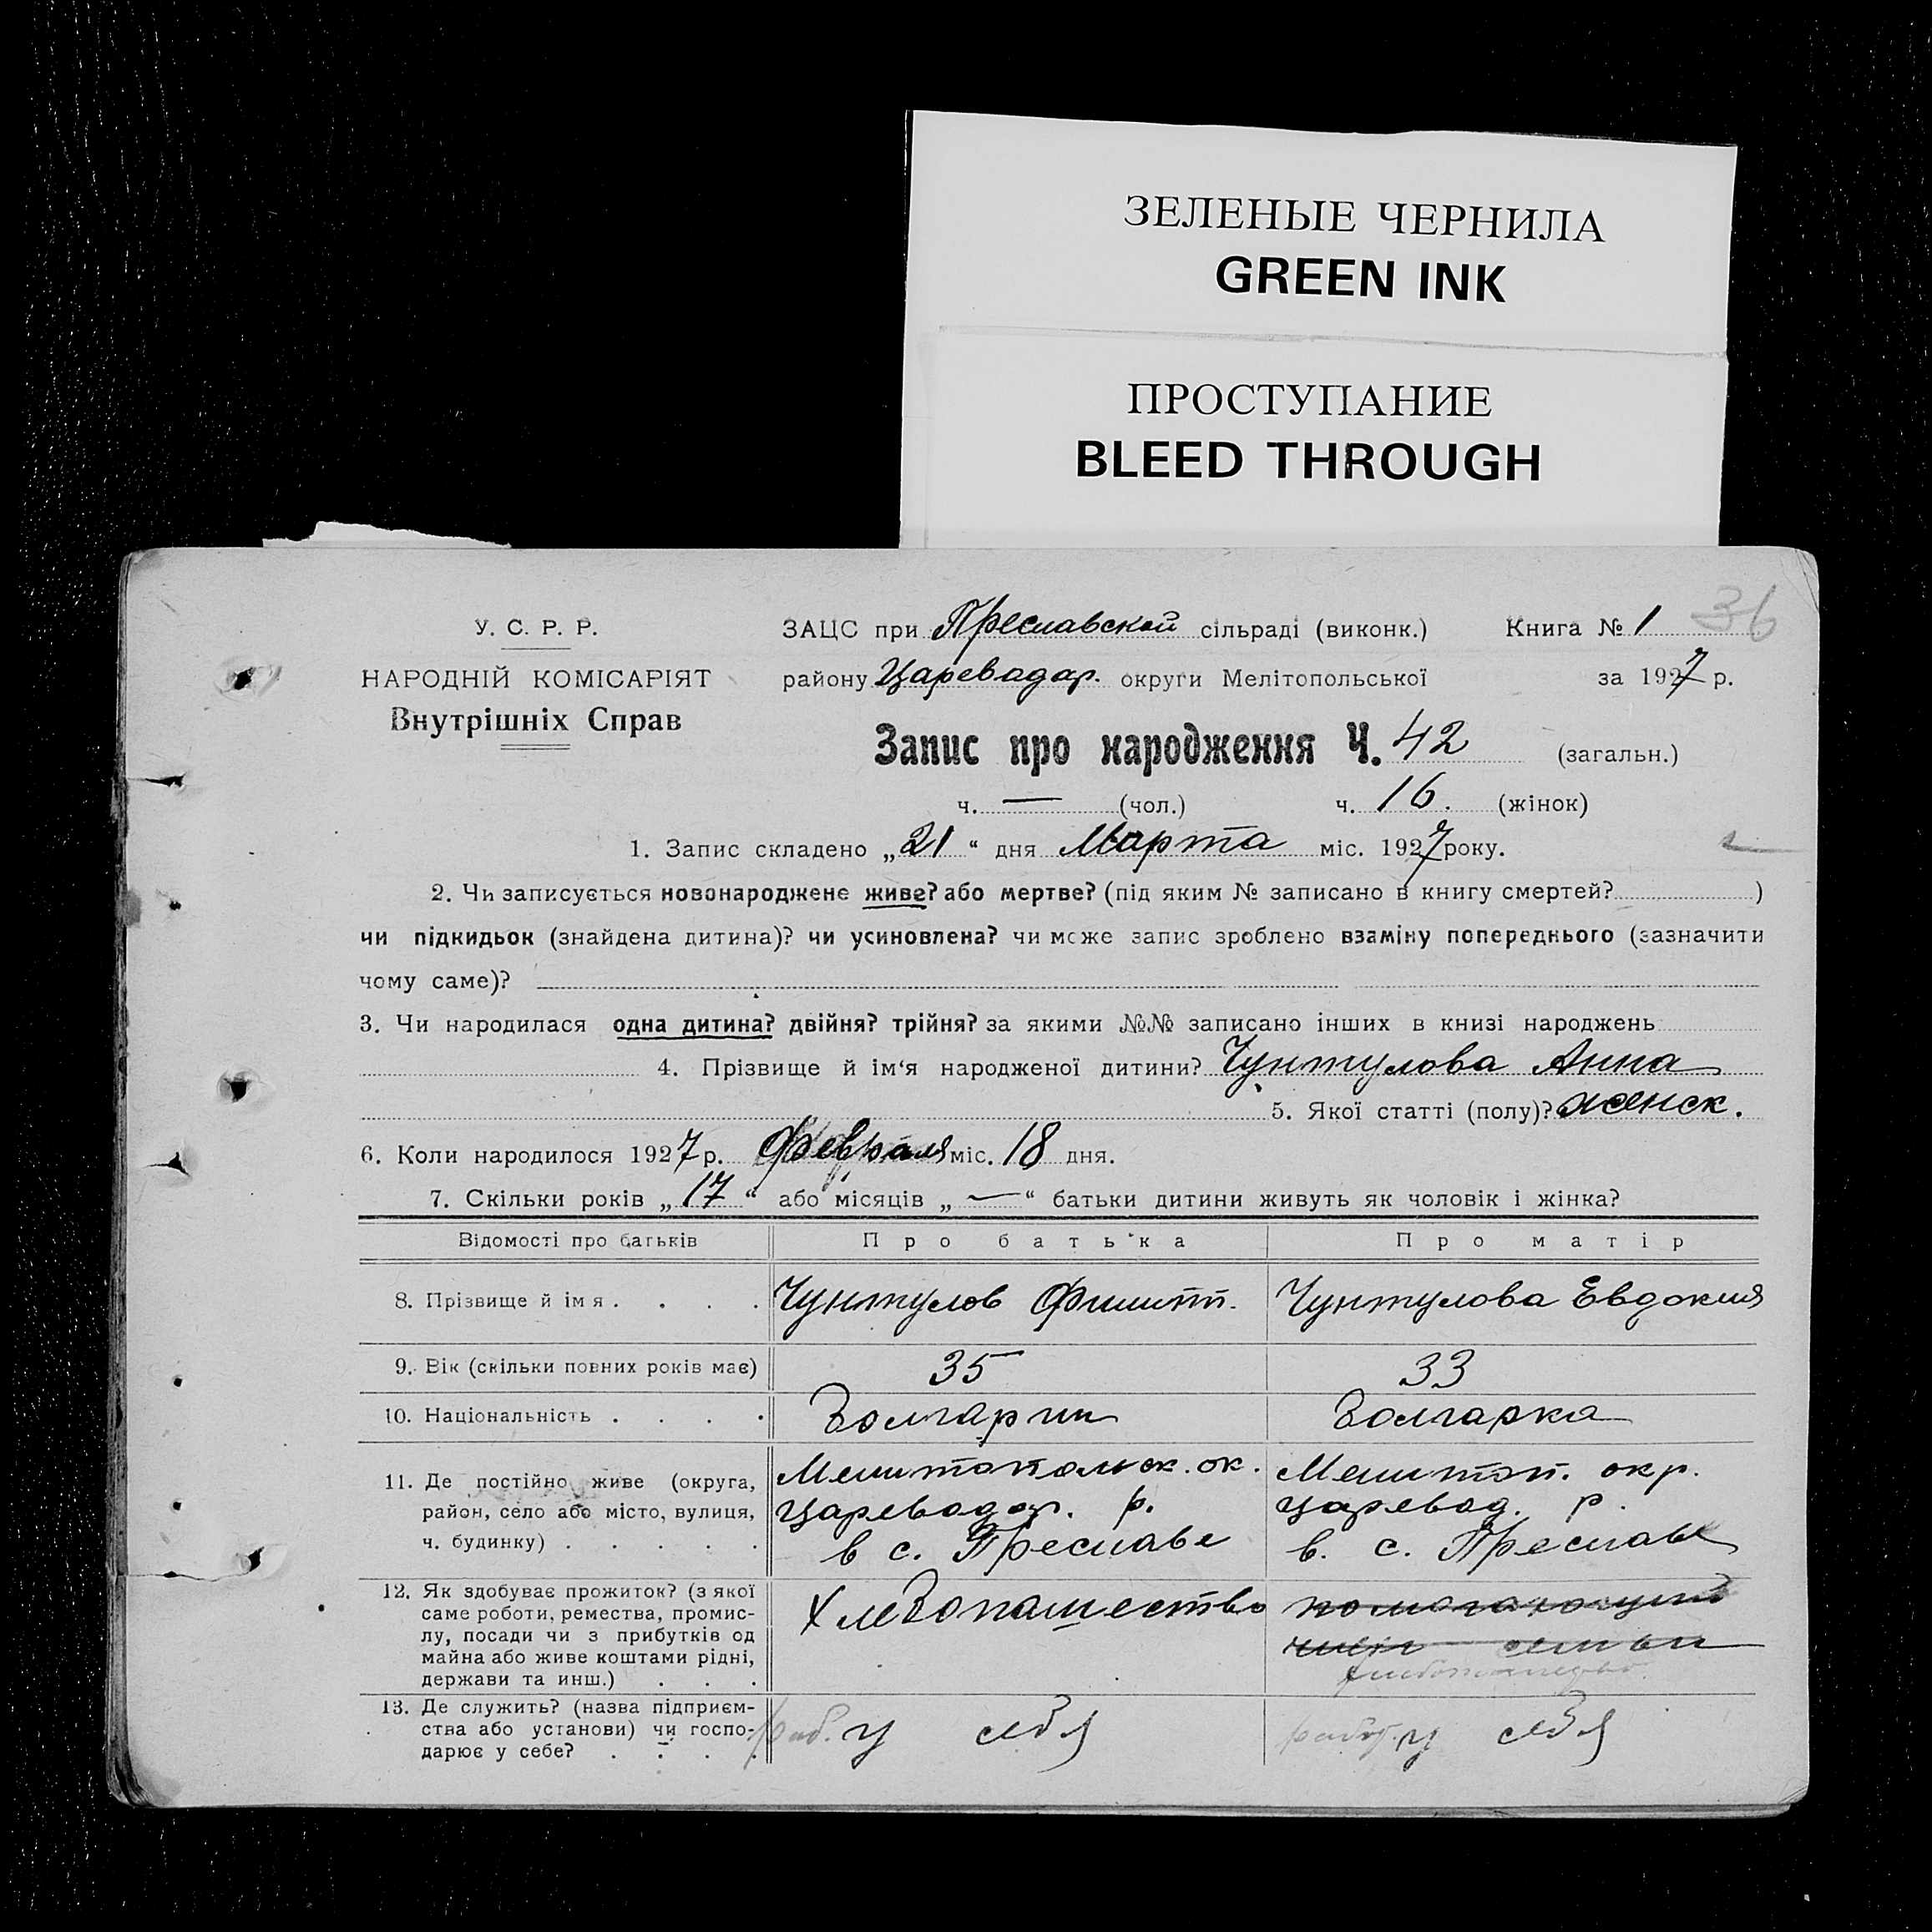 ЗЕЛЕНЫЕ ЧЕРНИЛА
GREEN INK
ПРОСТУПАНИЕ
BLEED THROUGH
36
У. С. Р. Р.
НАРОДНІЙ КОМІСАРІЯТ
Внутрішніх Справ
ЗАЦС при Преславской сільраді (виконк.) Книга № 1
району Цареводар. округи Мелітопольської за 1927 р.
Запис про народження Ч. 42 (загальн.)
ч. — (чол.) ч. 16. (жінок)
1. Запис складено „21“ дня Марта міс. 1927 року.
2. Чи записується новонароджене живе? або мертве? (під яким № записано в книгу смертей? )
чи підкидьок (знайдена дитина)? чи усиновлена? чи може запис зроблено взаміну попереднього (зазначити
чому саме)?
3. Чи народилася одна дитина? двійня? трійня? за якими №№ записано інших в книзі народжень
4. Прізвище й ім‘я народженої дитини? Чунтулова Анна
5. Якої статті (полу)? женск.
6. Коли народилося 1927 р. Февраля міс. 18 дня.
7. Скільки років „17“ або місяців „—“ батьки дитини живуть як чоловік і жінка?
Відомості про батьків Про батька Про матір
8. Прізвище й імя . . . . Чунтулов Филипп. Чунтулова Евдокия
9. Вік (скільки повних років має) 35 33
10. Національність . . . . Болгарин Болгарка
11. Де постійно живе (округа, Мелитопольск. ок. Мелитоп. окр.
район, село або місто, вулиця, Цареводар. р. Царевод. р.
ч. будинку) . . . . . в с. Преславе в. с. Преславе
12. Як здобуває прожиток? (з якої Хлебопашество помогающий
саме роботи, ремества, промис-
лу, посади чи з прибутків од член семьи
майна або живе коштами рідні, хлебопашество.
держави та инш.) . . .
13. Де служить? (назва підприєм-
ства або установи) чи госпо- раб. у себя работ. у себя
дарює у себе? . . . .